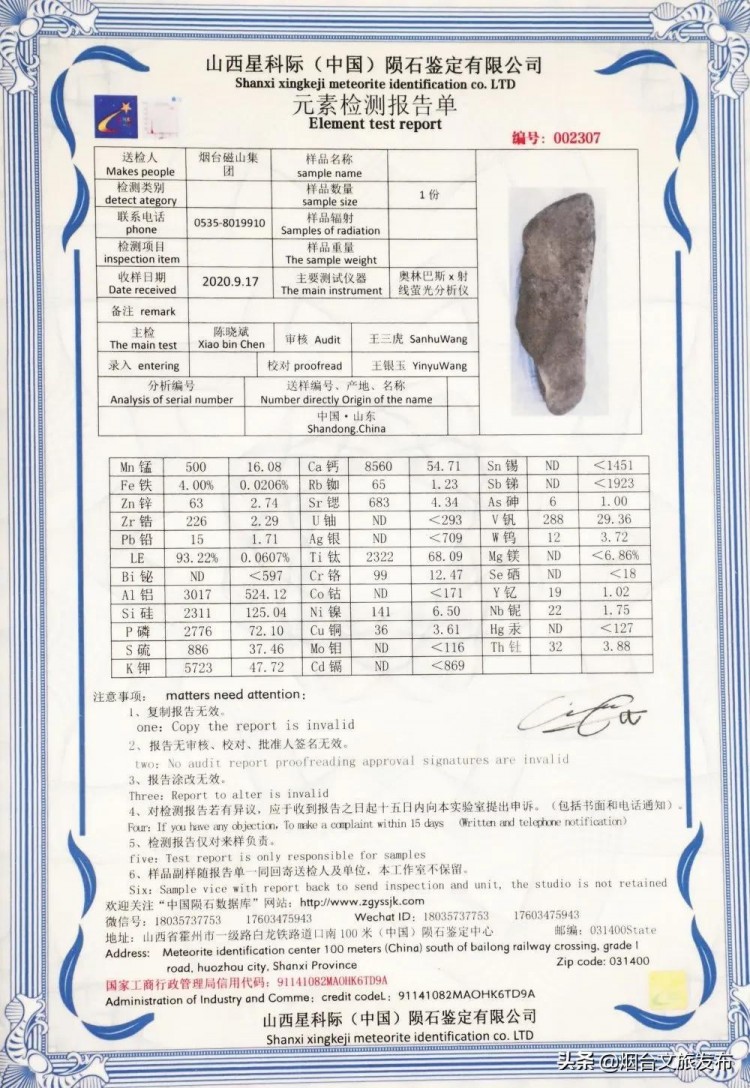 山西星科际（中国）陨石鉴定有限公司
Shanxi xingkeji meteorite identification co. LTD
元素检测报告单
Element test report
编号：002307
送检人 Makes people 烟台磁山集团 样品名称 sample name
检测类别 detect ategory 样品数量 sample size 1份
联系电话 phone 0535-8019910 样品辐射 Samples of radiation
检测项目 inspection item 样品重量 The sample weight
收样日期 Date received 2020.9.17 主要测试仪器 The main instrument 奥林巴斯x射线萤光分析仪
备注 remark
主检 The main test 陈晓斌 Xiao bin Chen 审核 Audit 王三虎 SanhuWang
录入 entering 校对 proofread 王银玉 YinyuWang
分析编号 Analysis of serial number 送样编号、产地、名称 Number directly Origin of the name
中国·山东
Shandong.China
Mn 锰 500 16.08 Ca 钙 8560 54.71 Sn 锡 ND <1451
Fe 铁 4.00% 0.0206% Rb 铷 65 1.23 Sb 锑 ND <1923
Zn 锌 63 2.74 Sr 锶 683 4.34 As 砷 6 1.00
Zr 锆 226 2.29 U 铀 ND <293 V 钒 288 29.36
Pb 铅 15 1.71 Ag 银 ND <709 W 钨 12 3.72
LE 93.22% 0.0607% Ti 钛 2322 68.09 Mg 镁 ND <6.86%
Bi 铋 ND <597 Cr 铬 99 12.47 Se 硒 ND <18
Al 铝 3017 524.12 Co 钴 ND <171 Y 钇 19 1.02
Si 硅 2311 125.04 Ni 镍 141 6.50 Nb 铌 22 1.75
P 磷 2776 72.10 Cu 铜 36 3.61 Hg 汞 ND <127
S 硫 886 37.46 Mo 钼 ND <116 Th 钍 32 3.88
K 钾 5723 47.72 Cd 镉 ND <869
注意事项： matters need attention;
1、复制报告无效。
one: Copy the report is invalid
2、报告无审核、校对、批准人签名无效。
two: No audit report proofreading approval signatures are invalid
3、报告涂改无效。
Three: Report to alter is invalid
4、对检测报告若有异议，应于收到报告之日起十五日内向本实验室提出申诉。（包括书面和电话通知）。
Four: If you have any objection, To make a complaint within 15 days （Written and telephone notification）
5、检测报告仅对来样负责。
five: Test report is only responsible for samples
6、样品副样随报告单一同回寄送检人及单位，本工作室不保留。
Six: Sample vice with report back to send inspection and unit, the studio is not retained
欢迎关注“中国陨石数据库”网站：http://www.zgyssjk.com
微信号：18035737753 17603475943 Wechat ID：18035737753 17603475943
地址：山西省霍州市一级路白龙铁路道口南100米（中国）陨石鉴定中心 邮编：031400State
Address: Meteorite identification center 100 meters (China) south of bailong railway crossing, grade I
road, huozhou city, Shanxi Province Zip code: 031400
国家工商行政管理局信用代码：91141082MAOHK6TD9A
Administration of Industry and Comme; credit codeL: 91141082MAOHK6TD9A
山西星科际（中国）陨石鉴定有限公司
Shanxi xingkeji meteorite identification co. LTD
头条 @烟台文旅发布